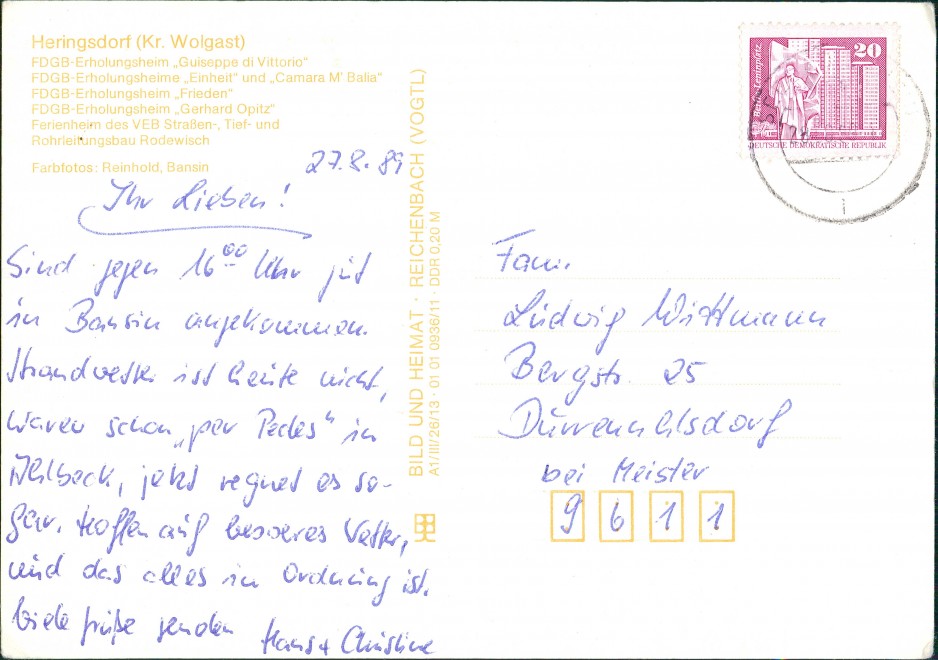 Heringsdorf (Kr. Wolgast)
FDGB-Erholungsheim „Guiseppe di Vittorio“
FDGB-Erholungsheime „Einheit“ und „Camara M' Balia“
FDGB-Erholungsheim „Frieden“
FDGB-Erholungsheim „Gerhard Opitz“
Ferienheim des VEB Straßen-, Tief- und
Rohrleitungsbau Rodewisch
Farbfotos: Reinhold, Bansin
27.8.89
Ihr Lieben!
Sind gegen 16⁰⁰ Uhr gut
in Bansin angekommen.
Strandwetter ist heute nicht,
waren schon „per Pedes“ in
Ahlbeck, jetzt regnet es so-
gar. Hoffen auf besseres Wetter,
und das alles in Ordnung ist.
Viele Grüße senden Hans + Christine
BILD UND HEIMAT · REICHENBACH (VOGTL)
A1/III/26/13 · 01 01 0936/11 · DDR 0,20 M
20
DEUTSCHE DEMOKRATISCHE REPUBLIK
Fam.
Ludwig Wittmann
Bergstr. 25
Dürrenuhlsdorf
bei Meister
9611